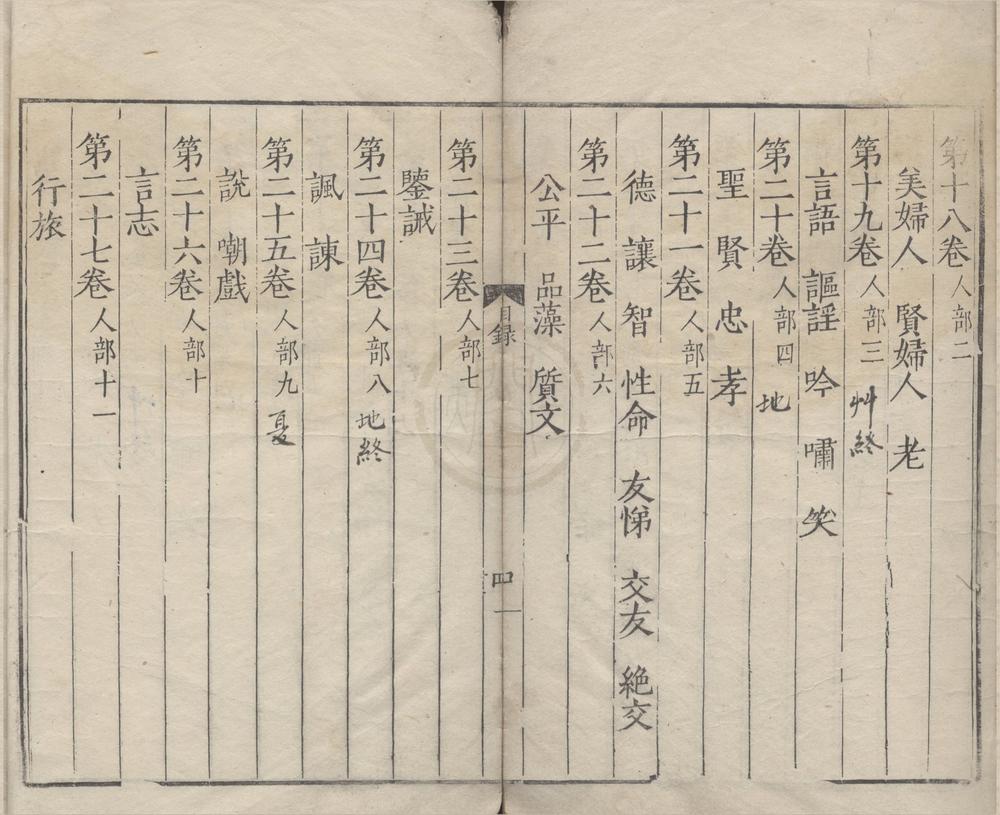 第十八卷 人部二
美婦人 賢婦人 老
第十九卷 人部三 艸終
言語 謳謡 吟 嘯 笑
第二十卷 人部四 地
聖 賢 忠 孝
第二十一卷 人部五
德 讓 智 性命 友悌 交友 絶交
第二十二卷 人部六
公平 品藻 質文
目録 四
第二十三卷 人部七
鑒誡
第二十四卷 人部八 地終
諷 諫
第二十五卷 人部九
說 嘲戲
第二十六卷 人部十
言志
第二十七卷 人部十一
行旅